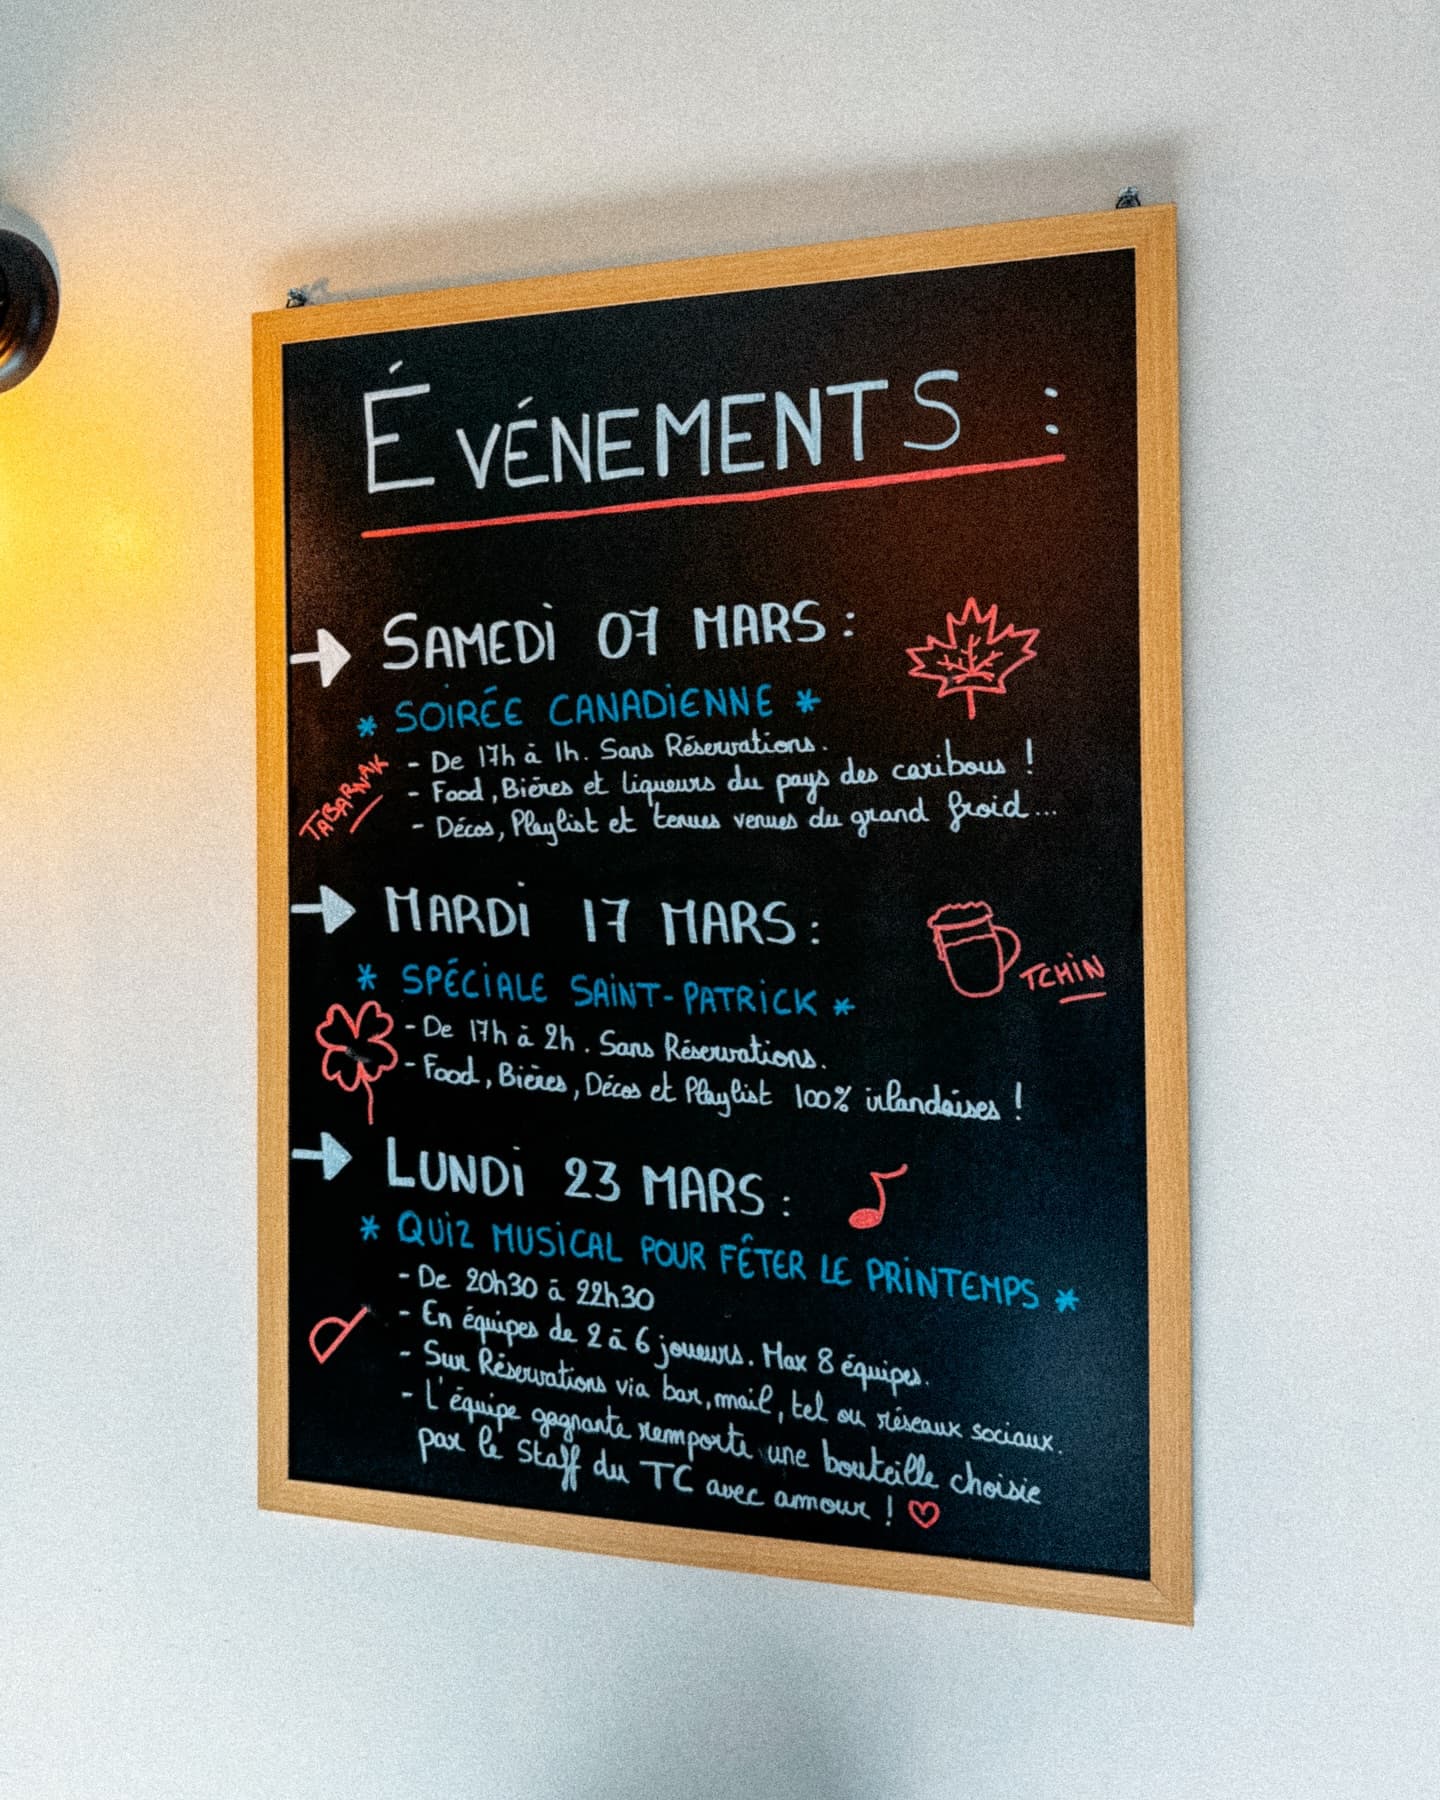 ÉVÉNEMENTS :
SAMEDI 07 MARS :
* SOIRÉE CANADIENNE *
- De 17h à 1h. Sans Réservations.
- Food, Bières et liqueurs du pays des caribous !
- Décos, Playlist et tenues venues du grand froid...
TABARNAK
MARDI 17 MARS :
* SPÉCIALE SAINT-PATRICK *
TCHIN
- De 17h à 2h. Sans Réservations.
- Food, Bières, Décos et Playlist 100% irlandaises !
LUNDI 23 MARS :
* QUIZ MUSICAL POUR FÊTER LE PRINTEMPS *
- De 20h30 à 22h30
- En équipes de 2 à 6 joueurs. Max 8 équipes.
- Sur Réservations via bar, mail, tel ou réseaux sociaux.
- L'équipe gagnante remporte une bouteille choisie
par le Staff du TC avec amour ! ♡